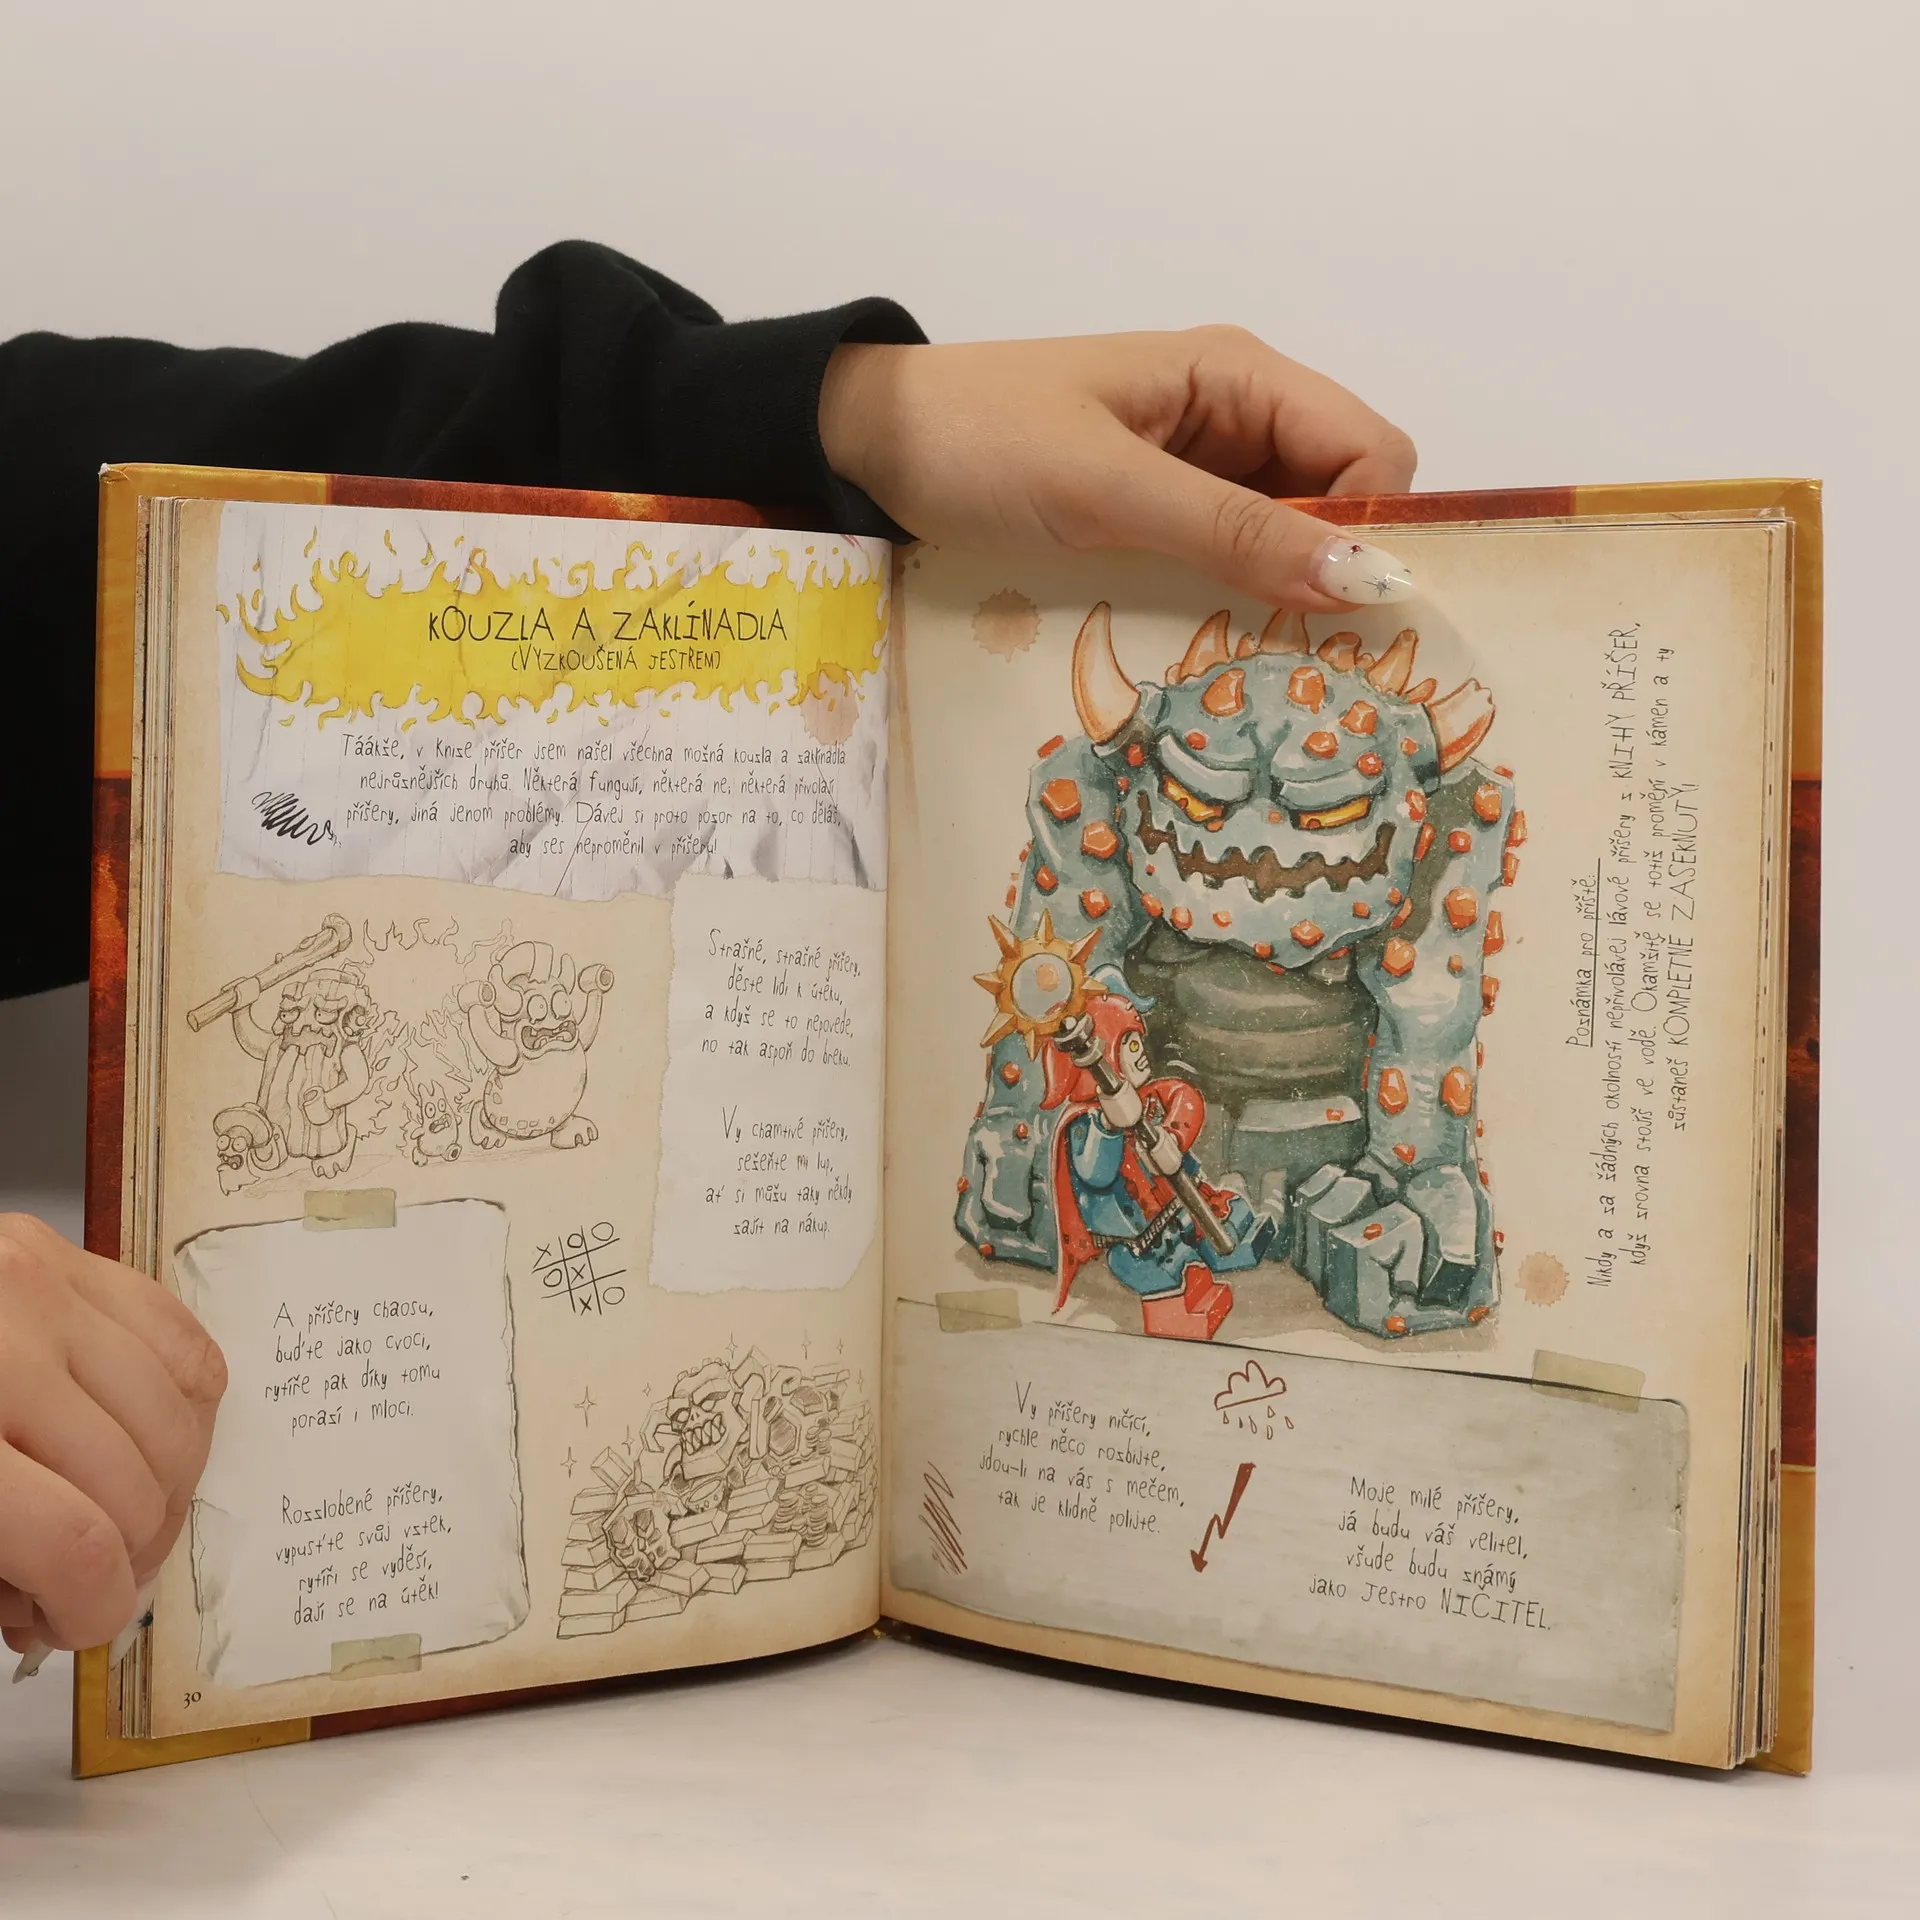 KOUZLA A ZAKLÍNADLA
(VYZKOUŠENÁ JESTREM)
Táákže, v Knize příšer jsem našel všechna možná kouzla a zaklínadla
nejrůznějších druhů. Některá fungují, některá ne; některá přivolají
příšery, jiná jenom problémy. Dávej si proto pozor na to, co děláš,
aby ses neproměnil v příšeru!
Strašné, strašné příšery,
děste lidi k útěku,
a když se to nepovede,
no tak aspoň do breku.
Vy chamtivé příšery,
sežeňte mi lup,
ať si můžu taky někdy
zajít na nákup.
A příšery chaosu,
buďte jako cvoci,
rytíře pak díky tomu
porazí i mloci.
X O O
O X
X O
Rozzlobené příšery,
vypusťte svůj vztek,
rytíři se vyděsí,
dají se na útěk!
30
Poznámka pro příště:
Nikdy a za žádných okolností nepřivolávej lávové příšery z KNIHY PŘÍŠER,
když zrovna stojíš ve vodě. Okamžitě se totiž promění v kámen a ty
zůstaneš KOMPLETNĚ ZASEKNUTÝ!
Vy příšery ničící,
rychle něco rozbijte,
jdou-li na vás s mečem,
tak je klidně polijte.
Moje milé příšery,
já budu váš velitel,
všude budu známý
jako Jestro NIČITEL.